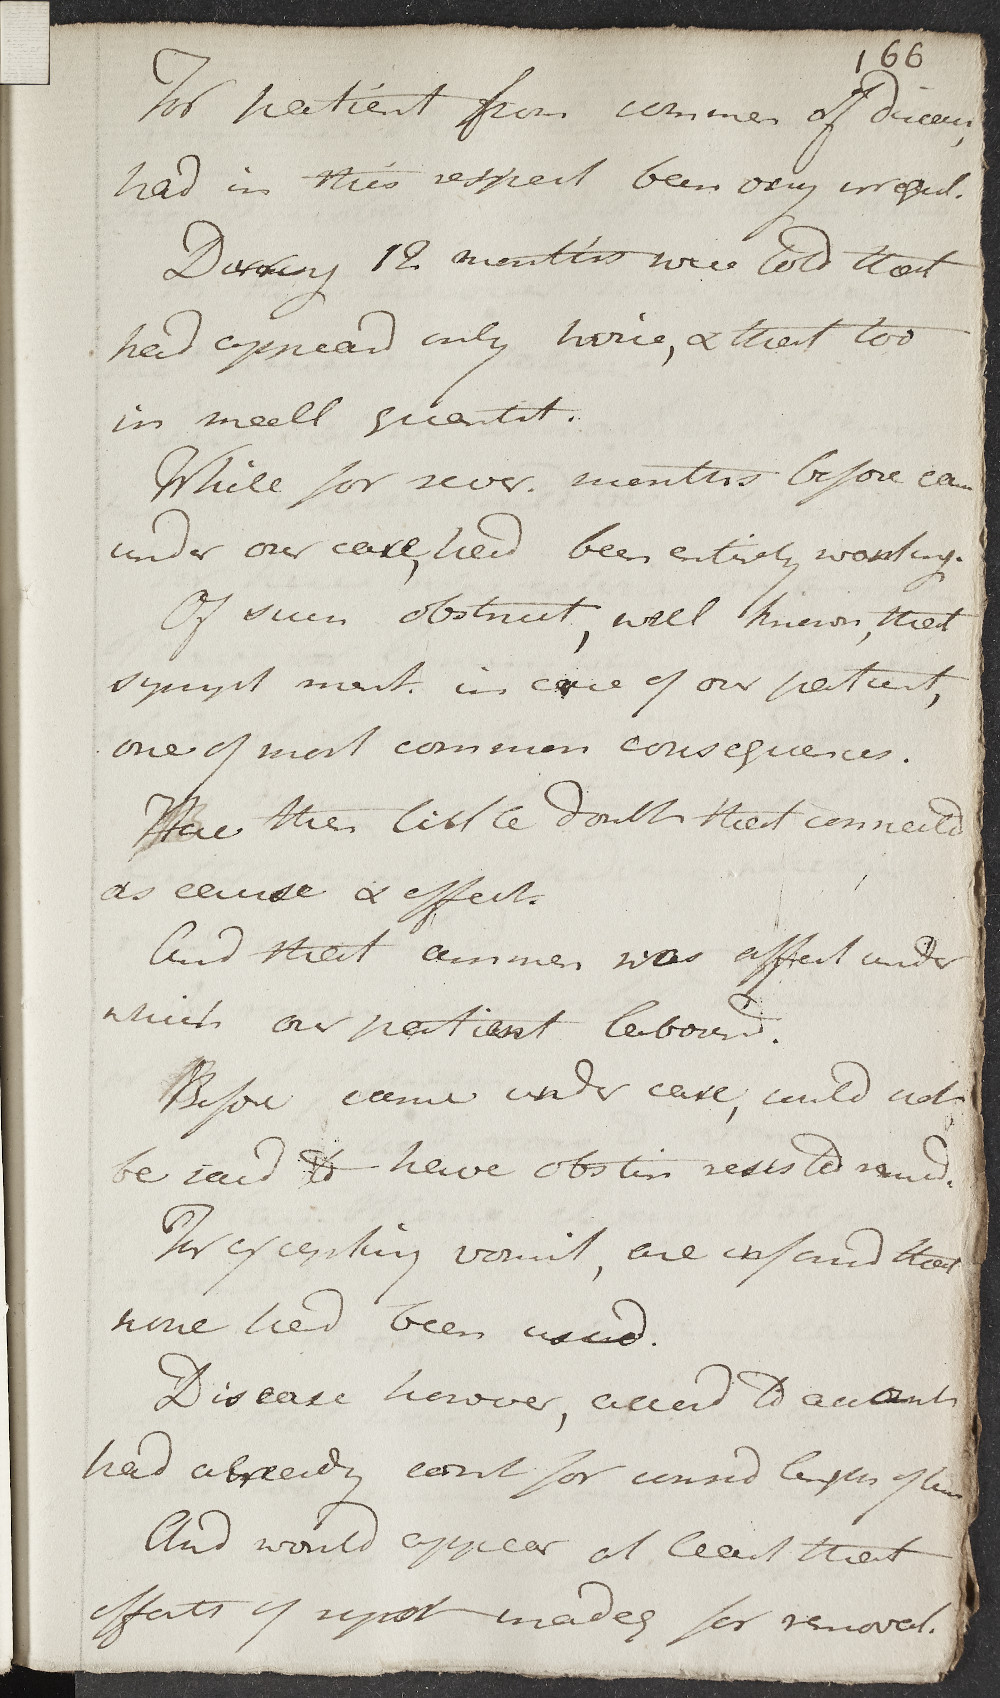 166
For patient from commen of diseas,
had in this respect been very irregul.
During 12 months were told that
had appeard only twice, & that too
in small quantit.
While for sever. months before cam
under our care, had been entirely wanting.
Of such obstruct, well known, that
sympt ment. in case of our patient,
one of most common consequences.
Have then little doubt that connected
as cause & effect.
And that ammen was affect under
which our patient labourd.
Before came under care, could not
be said to have obstin resisted remed.
For excepting vomit, are informd that
none had been used.
Disease however, accord to accounts
had already cont for consid length of tim
And would appear at least that
efforts of system inadeq for removal.